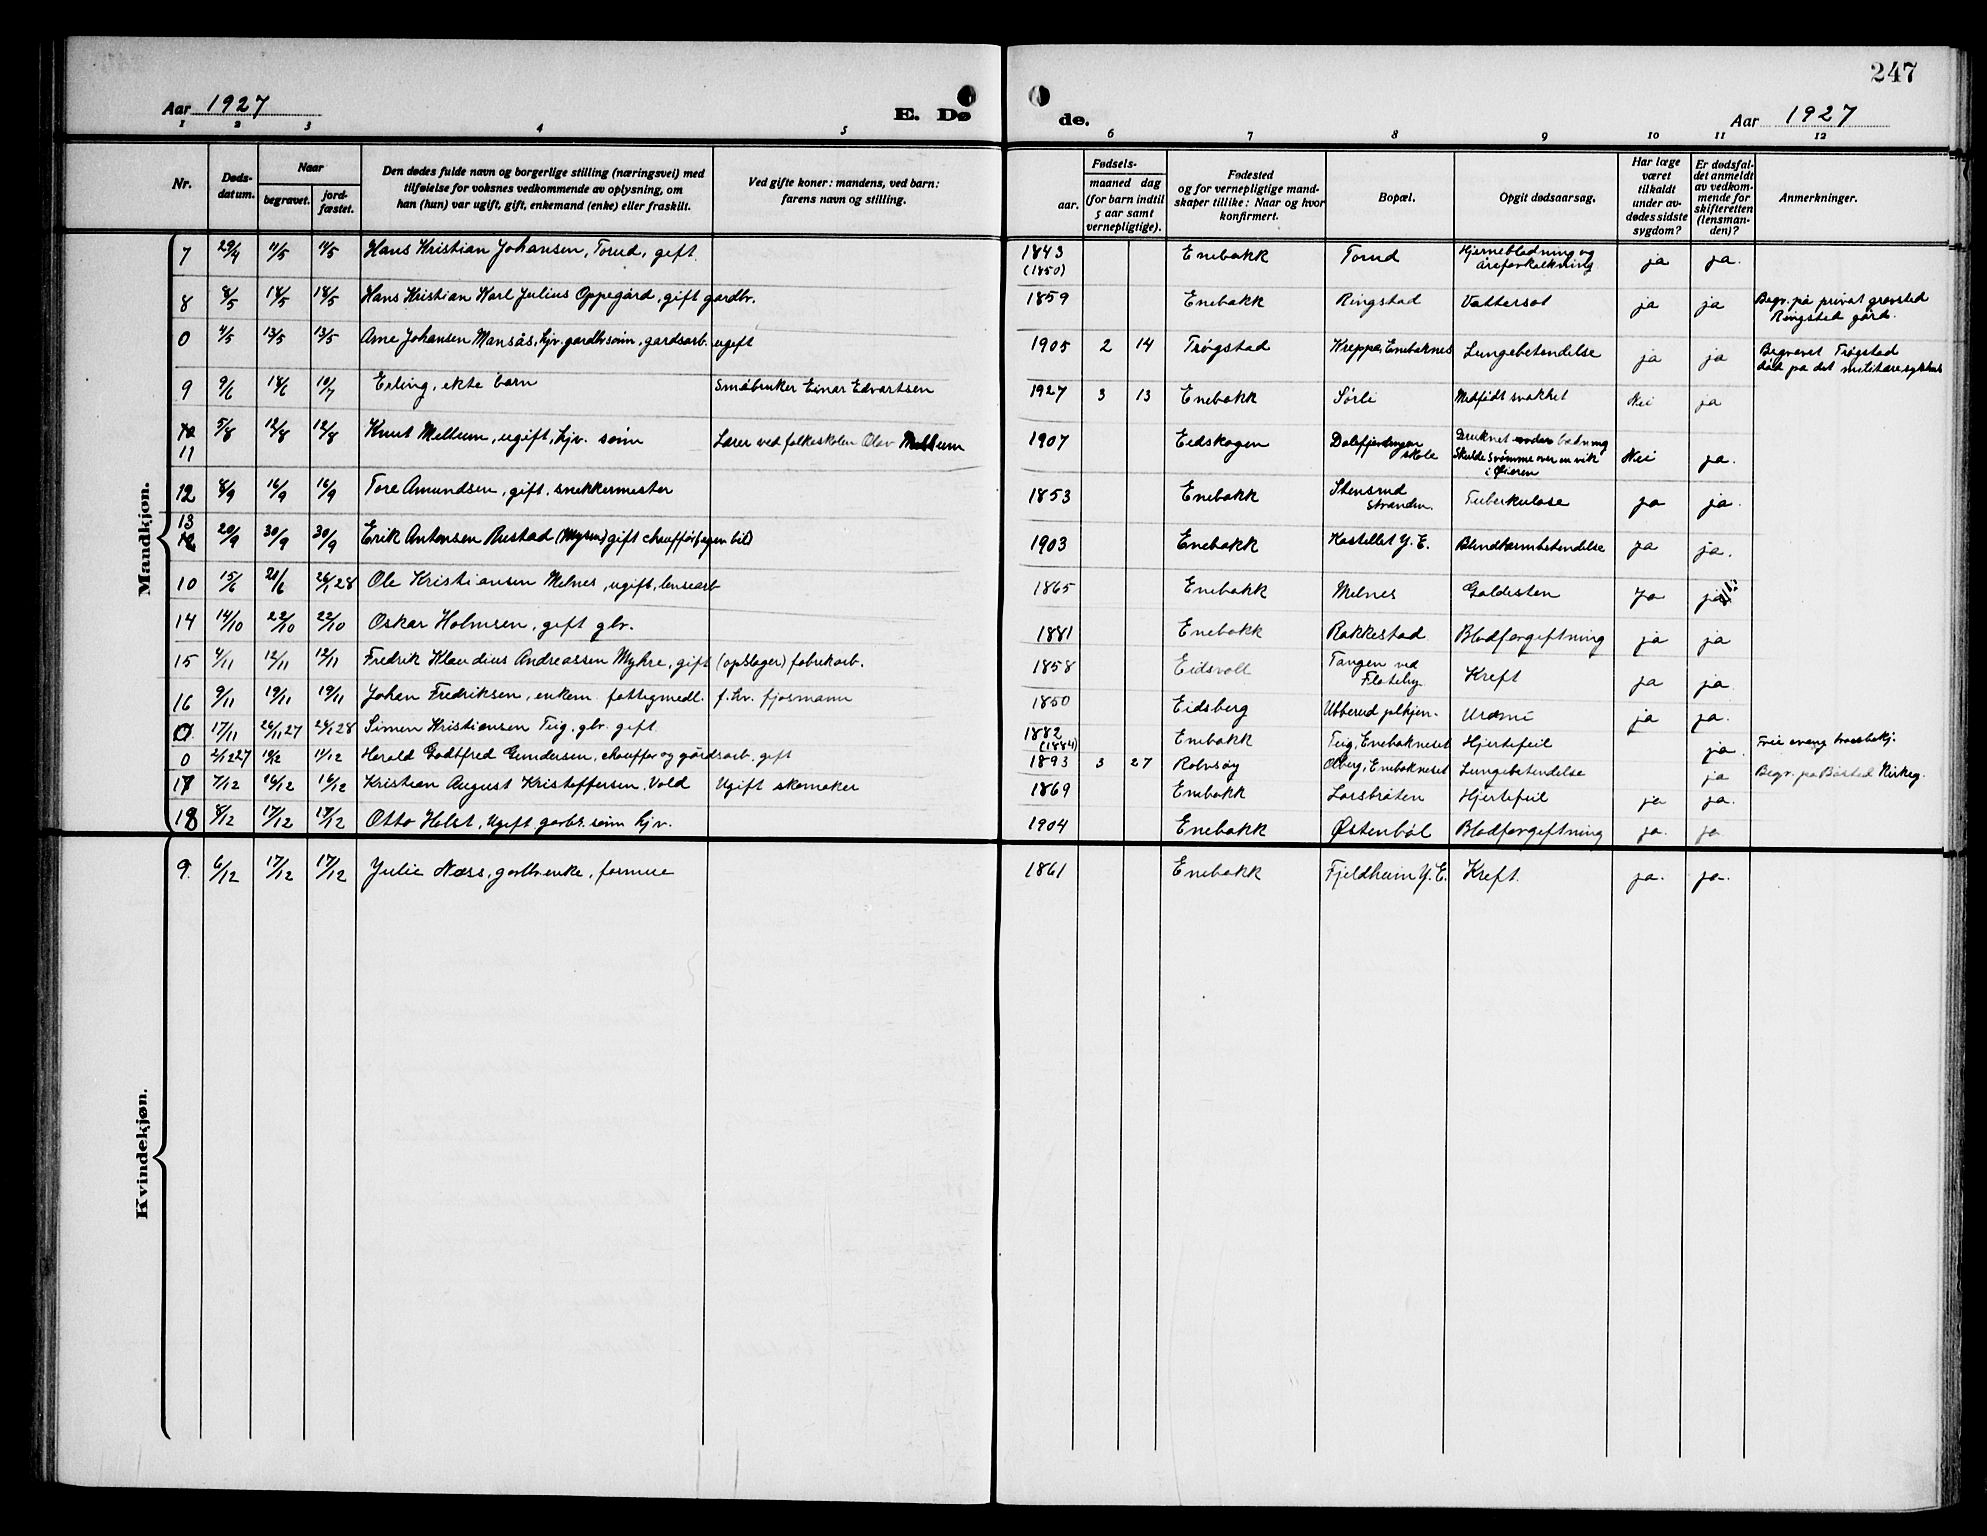 247
Aar 1927
E. Dø
de.
Aar 1927
1 2 3 4 5 6 7 8 9 10 11 12
Nr.
Døds-
datum.
Naar
begravet.
jord-
fæstet.
Den dødes fulde navn og borgerlige stilling (næringsvei) med
tilføielse for voksnes vedkommende av oplysning, om
han (hun) var ugift, gift, enkemand (enke) eller fraskilt.
Ved gifte koner: mandens, ved barn:
farens navn og stilling.
Fødsels-
aar.
maaned dag
(for barn indtil
5 aar samt
vernepligtige).
Fødested
og for vernepligtige mand-
skaper tillike: Naar og hvor
konfirmert.
Bopæl.
Opgit dødsaarsag.
Har læge
været
tilkaldt
under av-
dødes sidste
sygdom?
Er dødsfal-
det anmeldt
av vedkom-
mende for
skifteretten
(lensman-
den)?
Anmerkninger.
Mandkjøn.
7 29/4 11/5 11/5 Hans Kristian Johansen, Torud, gift 1843 (1850) Enebakk Torud Hjerneblødning og åreforkalkning ja ja.
8 8/5 18/5 18/5 Hans Kristian Karl Julius Oppegård, gift gardbr. 1859 Enebakk Ringstad Vattersot ja ja Begr. på privat gravsted Ringstad gård.
0 4/5 13/5 13/5 Arne Johansen Mansås, hjv. gardbrsønn, gardsarb. ugift 1905 2 14 Trøgstad Kreppa, Enebaknes Lungebetendelse ja ja Begravet Trøgstad død på det militære sykehus
9 9/6 18/6 10/7 Erling, ekte barn Småbruker Einar Edvartsen 1927 3 13 Enebakk Sørli Medfødt svakhet Nei ja
11 5/8 12/8 12/8 Knut Mellum, ugift, hjv. sønn Lærer ved folkeskolen Olav Mellum 1907 Eidskogen Dalefjerdingen skole Druknet under badning Skulde svømme over en vik i Øieren Nei ja.
12 8/9 16/9 16/9 Tore Amundsen, gift, snekkermester 1853 Enebakk Stensrud Stranden. Tuberkulose ja ja.
13 20/9 30/9 30/9 Erik Antonsen Rustad (Myren) gift chauffør (egen bil) 1903 Enebakk Kastellet Y. E. Blindtarmbetendelse ja ja.
10 15/6 21/6 26/1 28 Ole Kristiansen Melnes, ugift, lensearb 1865 Enebakk Melnes Galdesten ja ja
14 14/10 22/10 22/10 Oskar Holmsen, gift gbr. 1881 Enebakk Rakkestad Blodforgiftning ja ja
15 4/11 12/11 12/11 Fredrik Klaudius Andreassen Myhre, gift (opslager) fabrikarb. 1858 Eidsvoll Tangen ved Flateby Kreft ja ja
16 9/11 19/11 19/11 Johan Fredriksen, enkem. fattigmedl. f. hv. fjøsmann 1850 Eidsberg Ubberud plhjem. Uræmi ja ja.
0 17/11 26/11 27 24/1 28 Simen Kristiansen Teig, gbr. gift 1882 (1884) Enebakk Teig, Enebakneset Hjertefeil ja. Frie evang. trosbekj.
0 2/12 27 10/12 11/12 Harald Godtfred Gundersen, chauffør og gårdsarb. gift 1893 3 27 Rolvsøy Olberg, Enebakneset Lungebetendelse ja Begr. på Båstad Kirkeg.
17 7/12 16/12 16/12 Kristian August Kristoffersen Vold Ugift skomaker 1869 Enebakk Larsbråten Hjertefeil ja ja.
18 8/12 17/12 17/12 Otto Holst, Ugift garbr. sønn hjv. 1904 Enebakk Østenbøl Blodforgiftning ja. ja
Kvindekjøn.
9. 6/12 17/12 17/12 Julie Næss, garbr.enke, formue 1861 Enebakk Fjeldheim Y. E. Kreft. ja. ja.